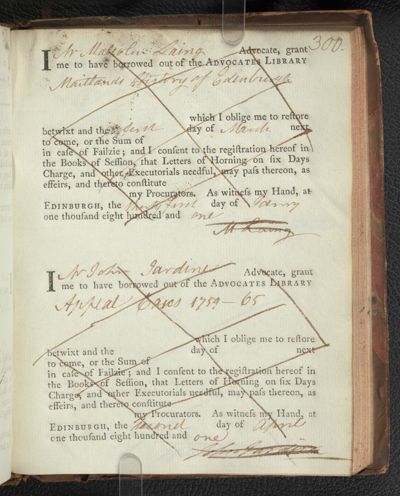 300.
I Mr Malcolm Laing Advocate, grant
me to have borrowed out of the ADVOCATES LIBRARY
Maitlands History of Edenburgh
which I oblige me to reſtore
betwixt and the first day of March next
to come, or the Sum of
in caſe of Failzie; and I conſent to the regiſtration hereof in
the Books of Seſſion, that Letters of Horning on ſix Days
Charge, and other Executorials needful, may paſs thereon, as
effeirs, and thereto conſtitute
my Procurators. As witneſs my Hand, at
EDINBURGH, the day of
one thouſand eight hundred and one
M Laing
I Mr John Jardine Advocate, grant
me to have borrowed out of the ADVOCATES LIBRARY
Appeal Cases 1759-65
which I oblige me to reſtore
betwixt and the day of next
to come, or the Sum of
in caſe of Failzie; and I conſent to the regiſtration hereof in
the Books of Seſſion, that Letters of Horning on ſix Days
Charge, and other Executorials needful, may paſs thereon, as
effeirs, and thereto conſtitute
my Procurators. As witneſs my Hand, at
EDINBURGH, the second day of April
one thouſand eight hundred and one
John Jardine